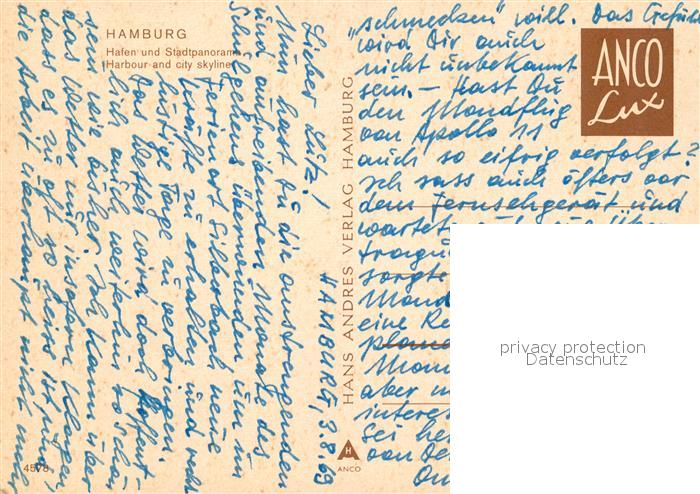 HAMBURG
Hafen und Stadtpanorama
Harbour and city skyline
HAMBURG, 3.8.69
Lieber Lutz!
Nun hast Du die anstrengenden
und aufreibenden Monate des
Schulgehens überwunden, um im
Ferienort Silberbach neue
Kräfte zu erhalten und recht
lustige Tage zu verbringen.
Das Wetter wird doch hoffent-
lich auch weiterhin so schön
sein wie bisher. Ich kann über
das Wetter nur insofern klagen,
dass es zu oft so heiss ist und
die Arbeit überhaupt nicht mehr
"schmecken" will. Das Gefühl
wird Dir auch
nicht unbekannt
sein. – Hast Du
den Mondflug
von Apollo 11
auch so eifrig verfolgt?
Ich sass auch öfters vor
dem Fernsehgerät und
wartete
sorgte
Mond
eine
Mon
aber
interes
Sei
von
ANCO
Lux
HANS ANDRES VERLAG HAMBURG
H
ANCO
4578
privacy protection
Datenschutz